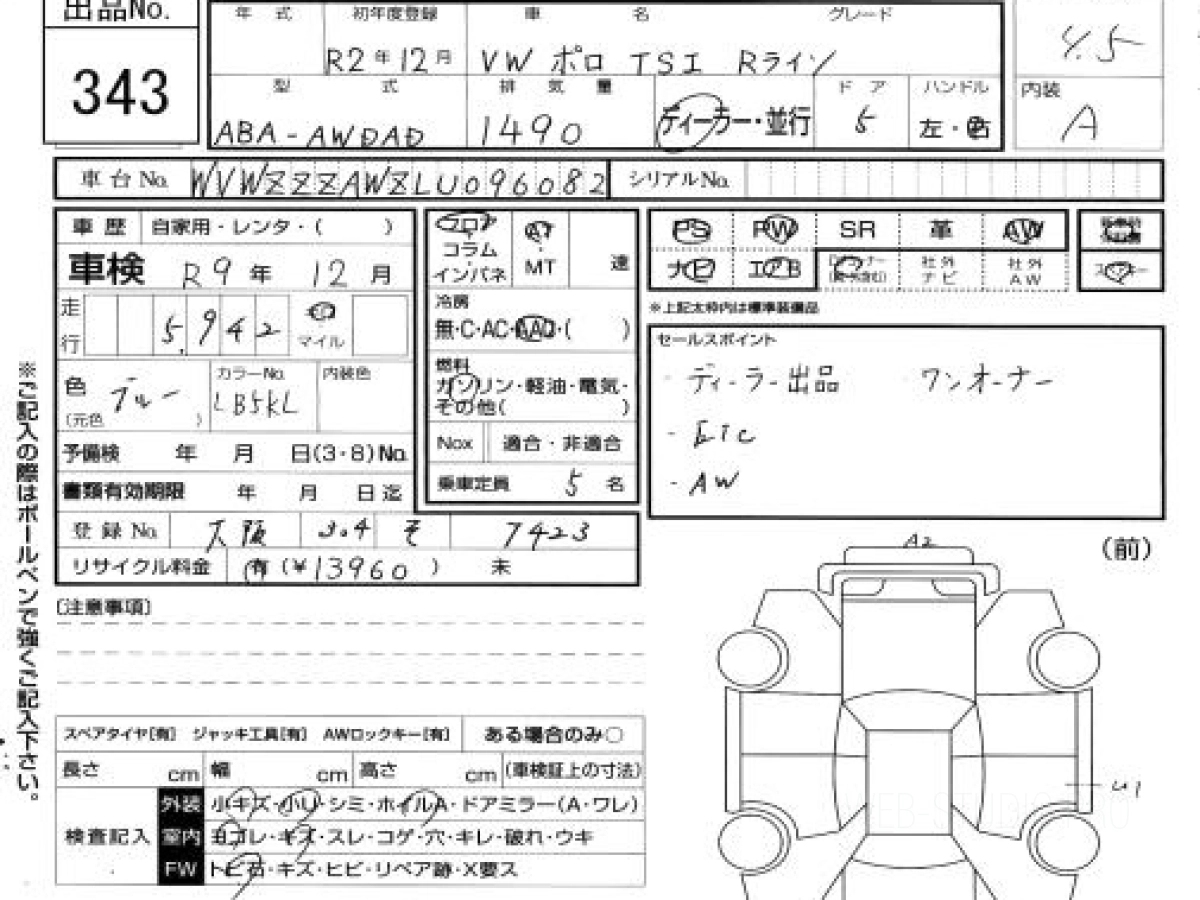 出品No.
343
年 式 初年度登録 車 名 グレード
R2年12月 VW ポロ TSI Rライン 4.5
型 式 排 気 量 ドア ハンドル 内装
ABA-AWDAD 1490 ディーラー・並行 5 左・右 A
車台No. WVWZZZAWZLU096082 シリアルNo.
車歴 自家用・レンタ・( )
フロア AT
コラム ・
インパネ MT 速
PS PW SR 革 AW
車検 R9年 12月
ナビ エアB 社外ナビ 社外AW
※上記太枠内は標準装備品
走行 5,942 マイル
冷房
無・C・AC・AAC・( )
セールスポイント
・ディーラー出品 ワンオーナー
・ETC
・AW
色 ブルー カラーNo. LB5KL 内装色
(元色 )
燃料
ガソリン・軽油・電気・
その他( )
予備検 年 月 日(3・8)No.
Nox 適合・非適合
書類有効期限 年 月 日迄
乗車定員 5名
登録No. 大阪 7423
リサイクル料金 有 (¥13960) 未
※ご記入の際はボールペンで強くご記入下さい。
(前)
A2
[注意事項]
スペアタイヤ[有] ジャッキ工具[有] AWロックキー[有] ある場合のみ○
長さ cm 幅 cm 高さ cm (車検証上の寸法)
検査記入
外装 小キズ・小U・シミ・ホイルA・ドアミラー(A・ワレ)
室内 ヨゴレ・キズ・スレ・コゲ・穴・キレ・破れ・ウキ
FW トビ石・キズ・ヒビ・リペア跡・X要ス
U1